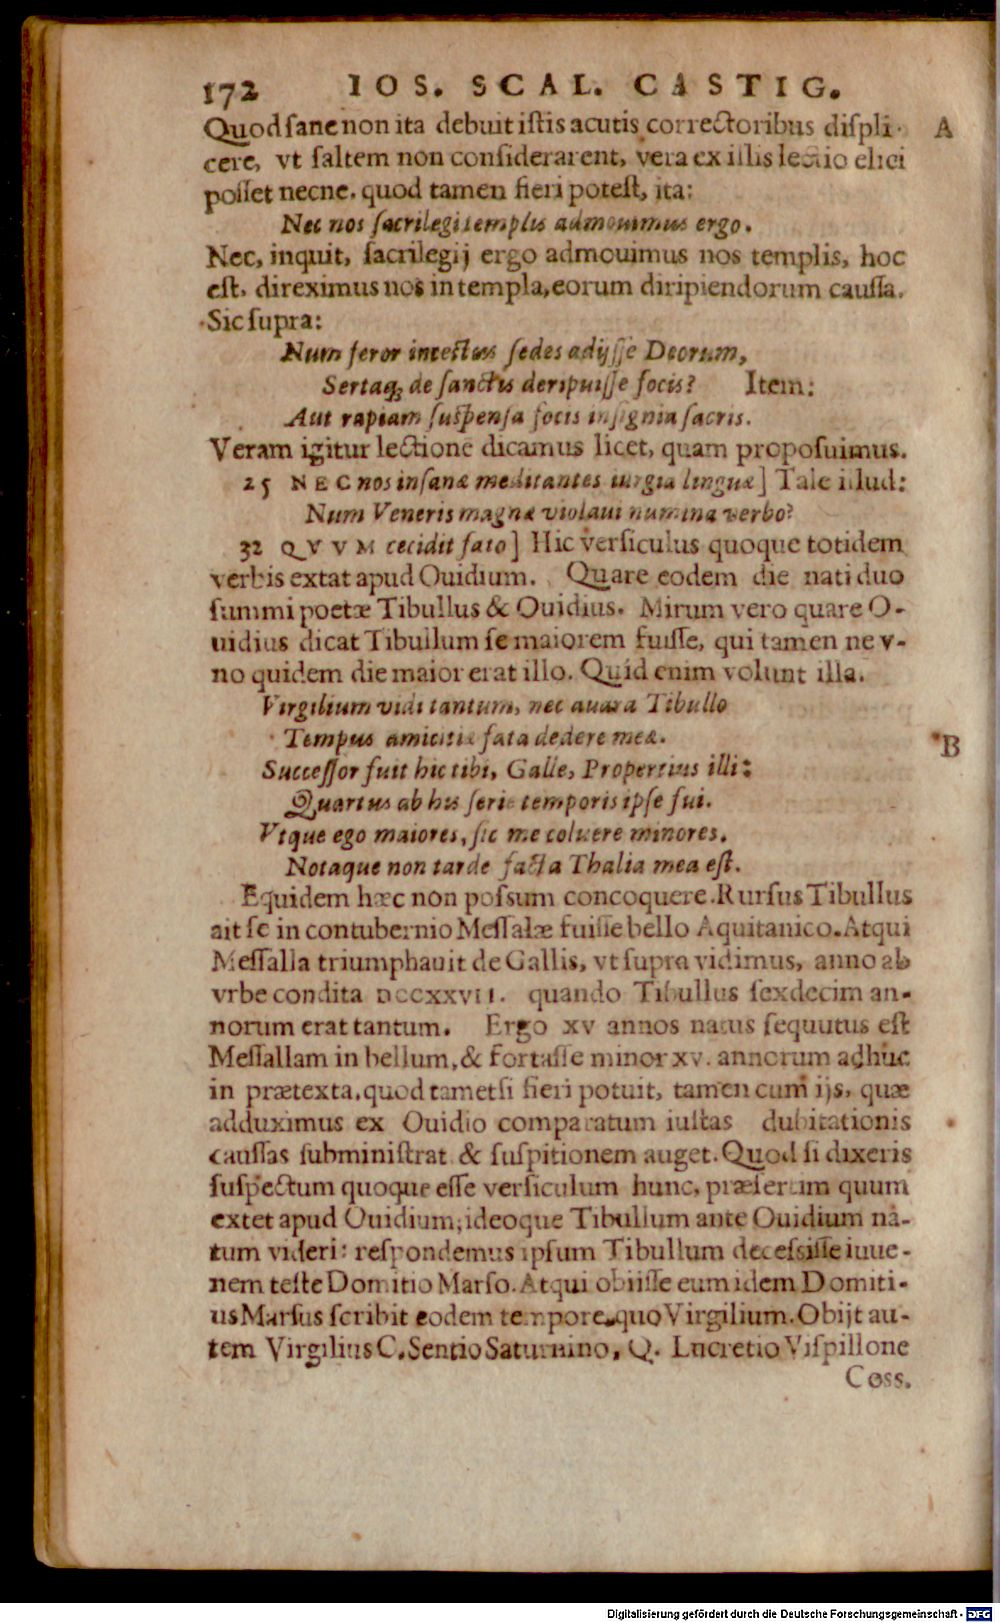 172 IOS. SCAL. CASTIG.
Quod sane non ita debuit istis acutis correctoribus displi- A
cere, vt saltem non considerarent, vera ex illis lectio elici
posset necne. quod tamen fieri potest, ita:
Nec nos sacrilegi templis admouimus ergo.
Nec, inquit, sacrilegij ergo admouimus nos templis, hoc
est, direximus nos in templa, eorum diripiendorum caussa.
Sic supra:
Num feror incestus sedes adijsse Deorum,
Sertaq; de sanctis deripuisse focis? Item:
Aut rapiam suspensa focis insignia sacris.
Veram igitur lectione dicamus licet, quam proposuimus.
25 NEC nos insanæ meditantes iurgia linguæ] Tale illud:
Num Veneris magnæ violaui numina verbo?
32 QVVM cecidit fato] Hic versiculus quoque totidem
verbis extat apud Ouidium. Quare eodem die nati duo
summi poetæ Tibullus & Ouidius. Mirum vero quare O-
uidius dicat Tibullum se maiorem fuisse, qui tamen ne v-
no quidem die maior erat illo. Quid enim volunt illa.
Virgilium vidi tantum, nec auara Tibullo
Tempus amicitiæ fata dedere meæ. B
Successor fuit hic tibi, Galle, Propertius illi:
Quartus ab his serie temporis ipse fui.
Vtque ego maiores, sic me coluere minores.
Notaque non tarde facta Thalia mea est.
Equidem hæc non possum concoquere. Rursus Tibullus
ait se in contubernio Messalæ fuisse bello Aquitanico. Atqui
Messalla triumphauit de Gallis, vt supra vidimus, anno ab
vrbe condita DCCXXVII. quando Tibullus sexdecim an-
norum erat tantum. Ergo XV annos natus sequutus est
Messallam in bellum, & fortasse minor XV. annorum adhuc
in prætexta. quod tametsi fieri potuit, tamen cum ijs, quæ
adduximus ex Ouidio comparatum iustas dubitationis
caussas subministrat & suspitionem auget. Quod si dixeris
suspectum quoque esse versiculum hunc, præsertim quum
extet apud Ouidium; ideoque Tibullum ante Ouidium na-
tum videri: respondemus ipsum Tibullum decessisse iuue-
nem teste Domitio Marso. Atqui obiisse eum idem Domiti-
us Marsus scribit eodem tempore, quo Virgilium. Obijt au-
tem Virgilius C. Sentio Saturnino, Q. Lucretio Vispillone
Coss.
Digitalisierung gefördert durch die Deutsche Forschungsgemeinschaft - DFG